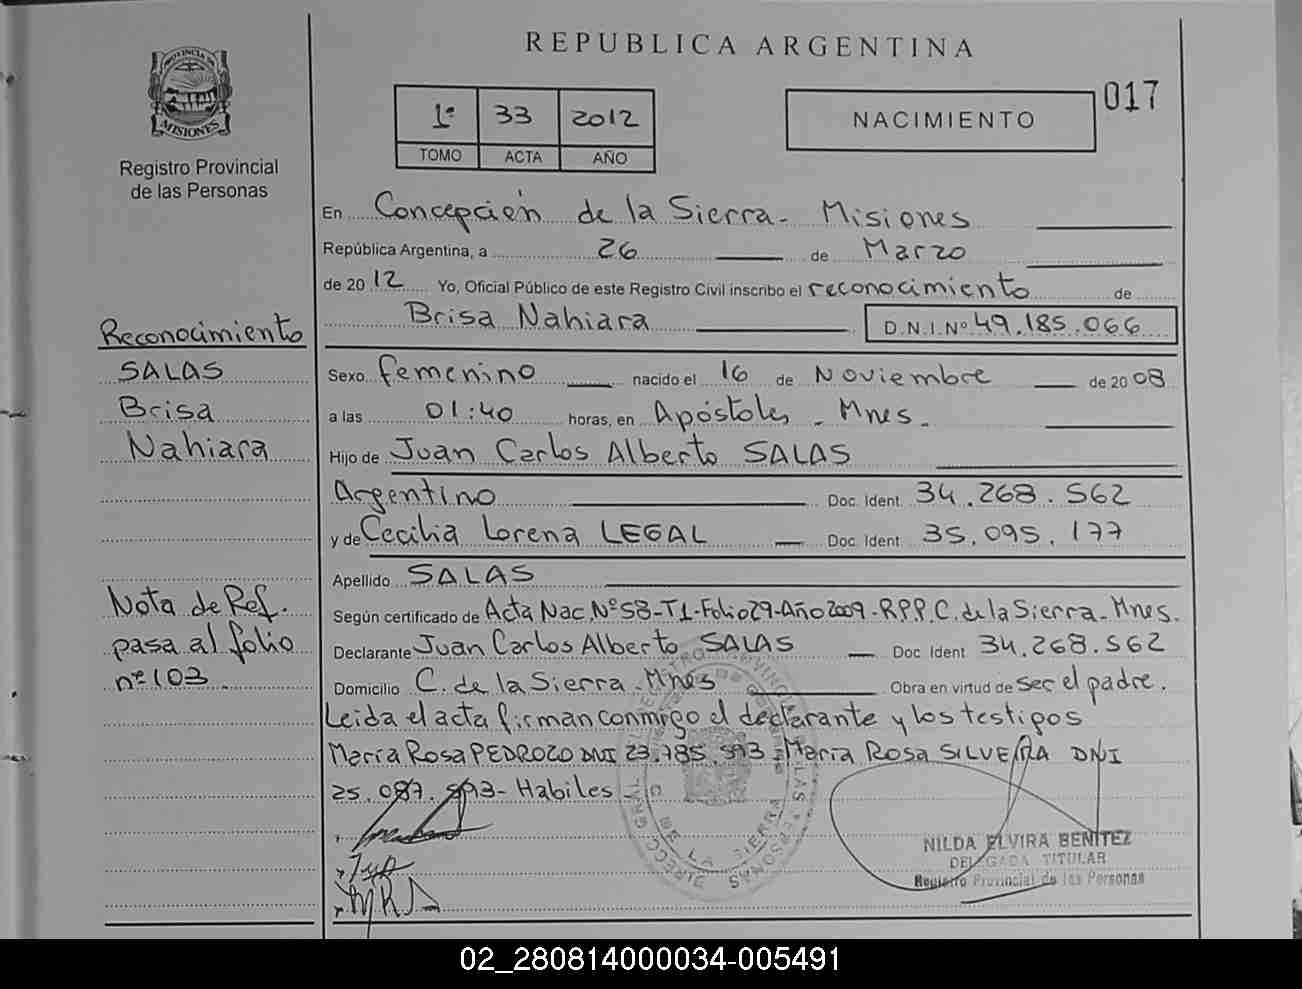 REPUBLICA ARGENTINA
017
PROVINCIA DE
MISIONES
Registro Provincial
de las Personas
1º 33 2012
TOMO ACTA AÑO
NACIMIENTO
En Concepción de la Sierra - Misiones
República Argentina, a 26 de Marzo
de 2012 Yo, Oficial Público de este Registro Civil inscribo el reconocimiento de
Brisa Nahiara D.N.I.Nº 49.185.066
Reconocimiento
SALAS
Brisa
Nahiara
Sexo femenino nacido el 16 de Noviembre de 2008
a las 01:40 horas, en Apóstoles - Mnes.
Hijo de Juan Carlos Alberto SALAS
Argentino Doc. Ident. 34.268.562
y de Cecilia Lorena LEGAL Doc. Ident. 35.095.177
Apellido SALAS
Nota de Ref.
pasa al folio
nº 103
Según certificado de Acta Nac. Nº 58-T1-Folio 29-Año 2009-R.P.P. C. de la Sierra - Mnes.
Declarante Juan Carlos Alberto SALAS Doc Ident 34.268.562
Domicilio C. de la Sierra - Mnes Obra en virtud de ser el padre.
Leida el acta firman conmigo el declarante y los testigos
Maria Rosa PEDROZO DNI 23.785.593 - Maria Rosa SILVERA DNI
25.087.593 - Habiles
C. DE LA SIERRA
NILDA ELVIRA BENITEZ
DELEGADA TITULAR
Registro Provincial de las Personas
02_280814000034-005491